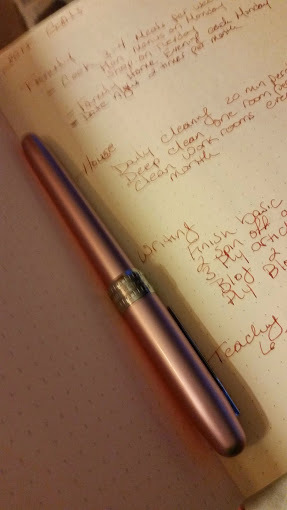 2017 Goals
Family
- Cook 3-4 Meals per week
Plan Menus on Monday
Shop on Tuesday
- Family Home Evening each Monday
- Date night 2 times per month
House
Daily cleaning 20 min per
Deep clean one room per
Clean work rooms every
month
Writing
Finish basic
Spin off
3 Fly articl
Blog 2
Fly Blo
Teaching